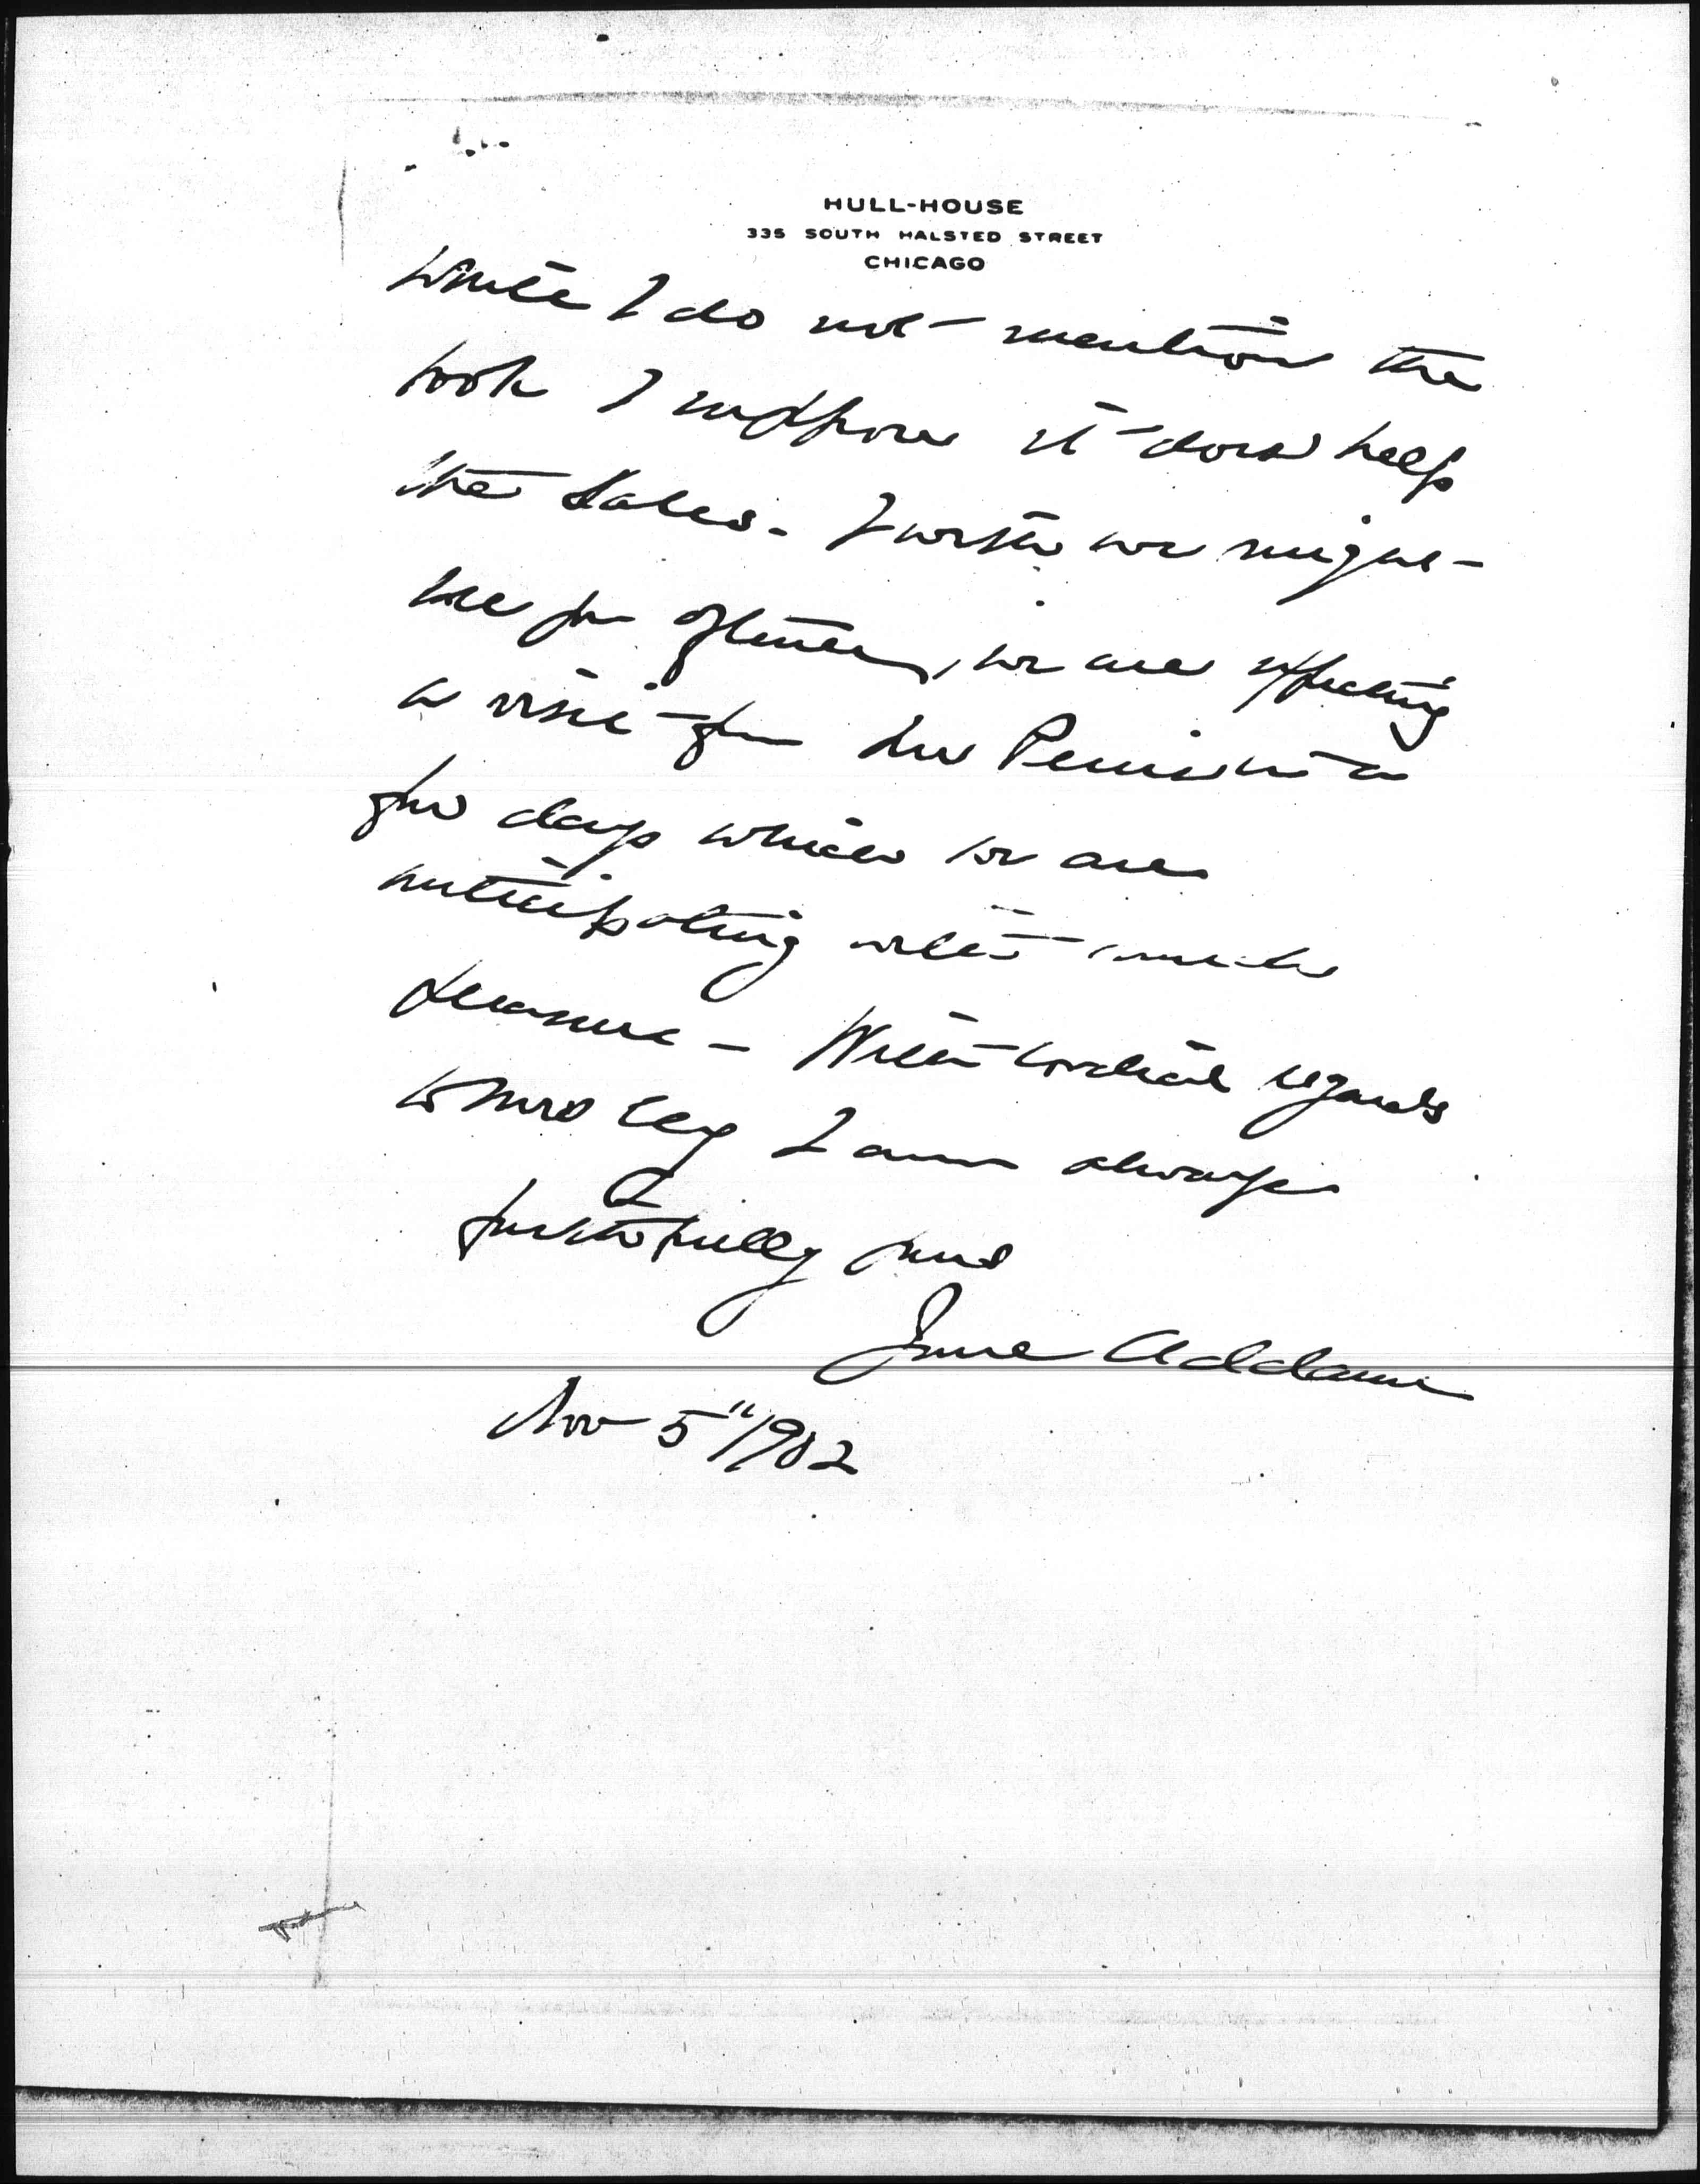 HULL-HOUSE
335 SOUTH HALSTED STREET
CHICAGO
While I do not mention the
book I suppose it does help
the sales. I wish we might
see you oftener, we are expecting
a visit from
few days which we are
anticipating with much
pleasure – With cordial regards
to Mrs Ely I am always
faithfully yours
Jane Addams
Nov 5" 1902